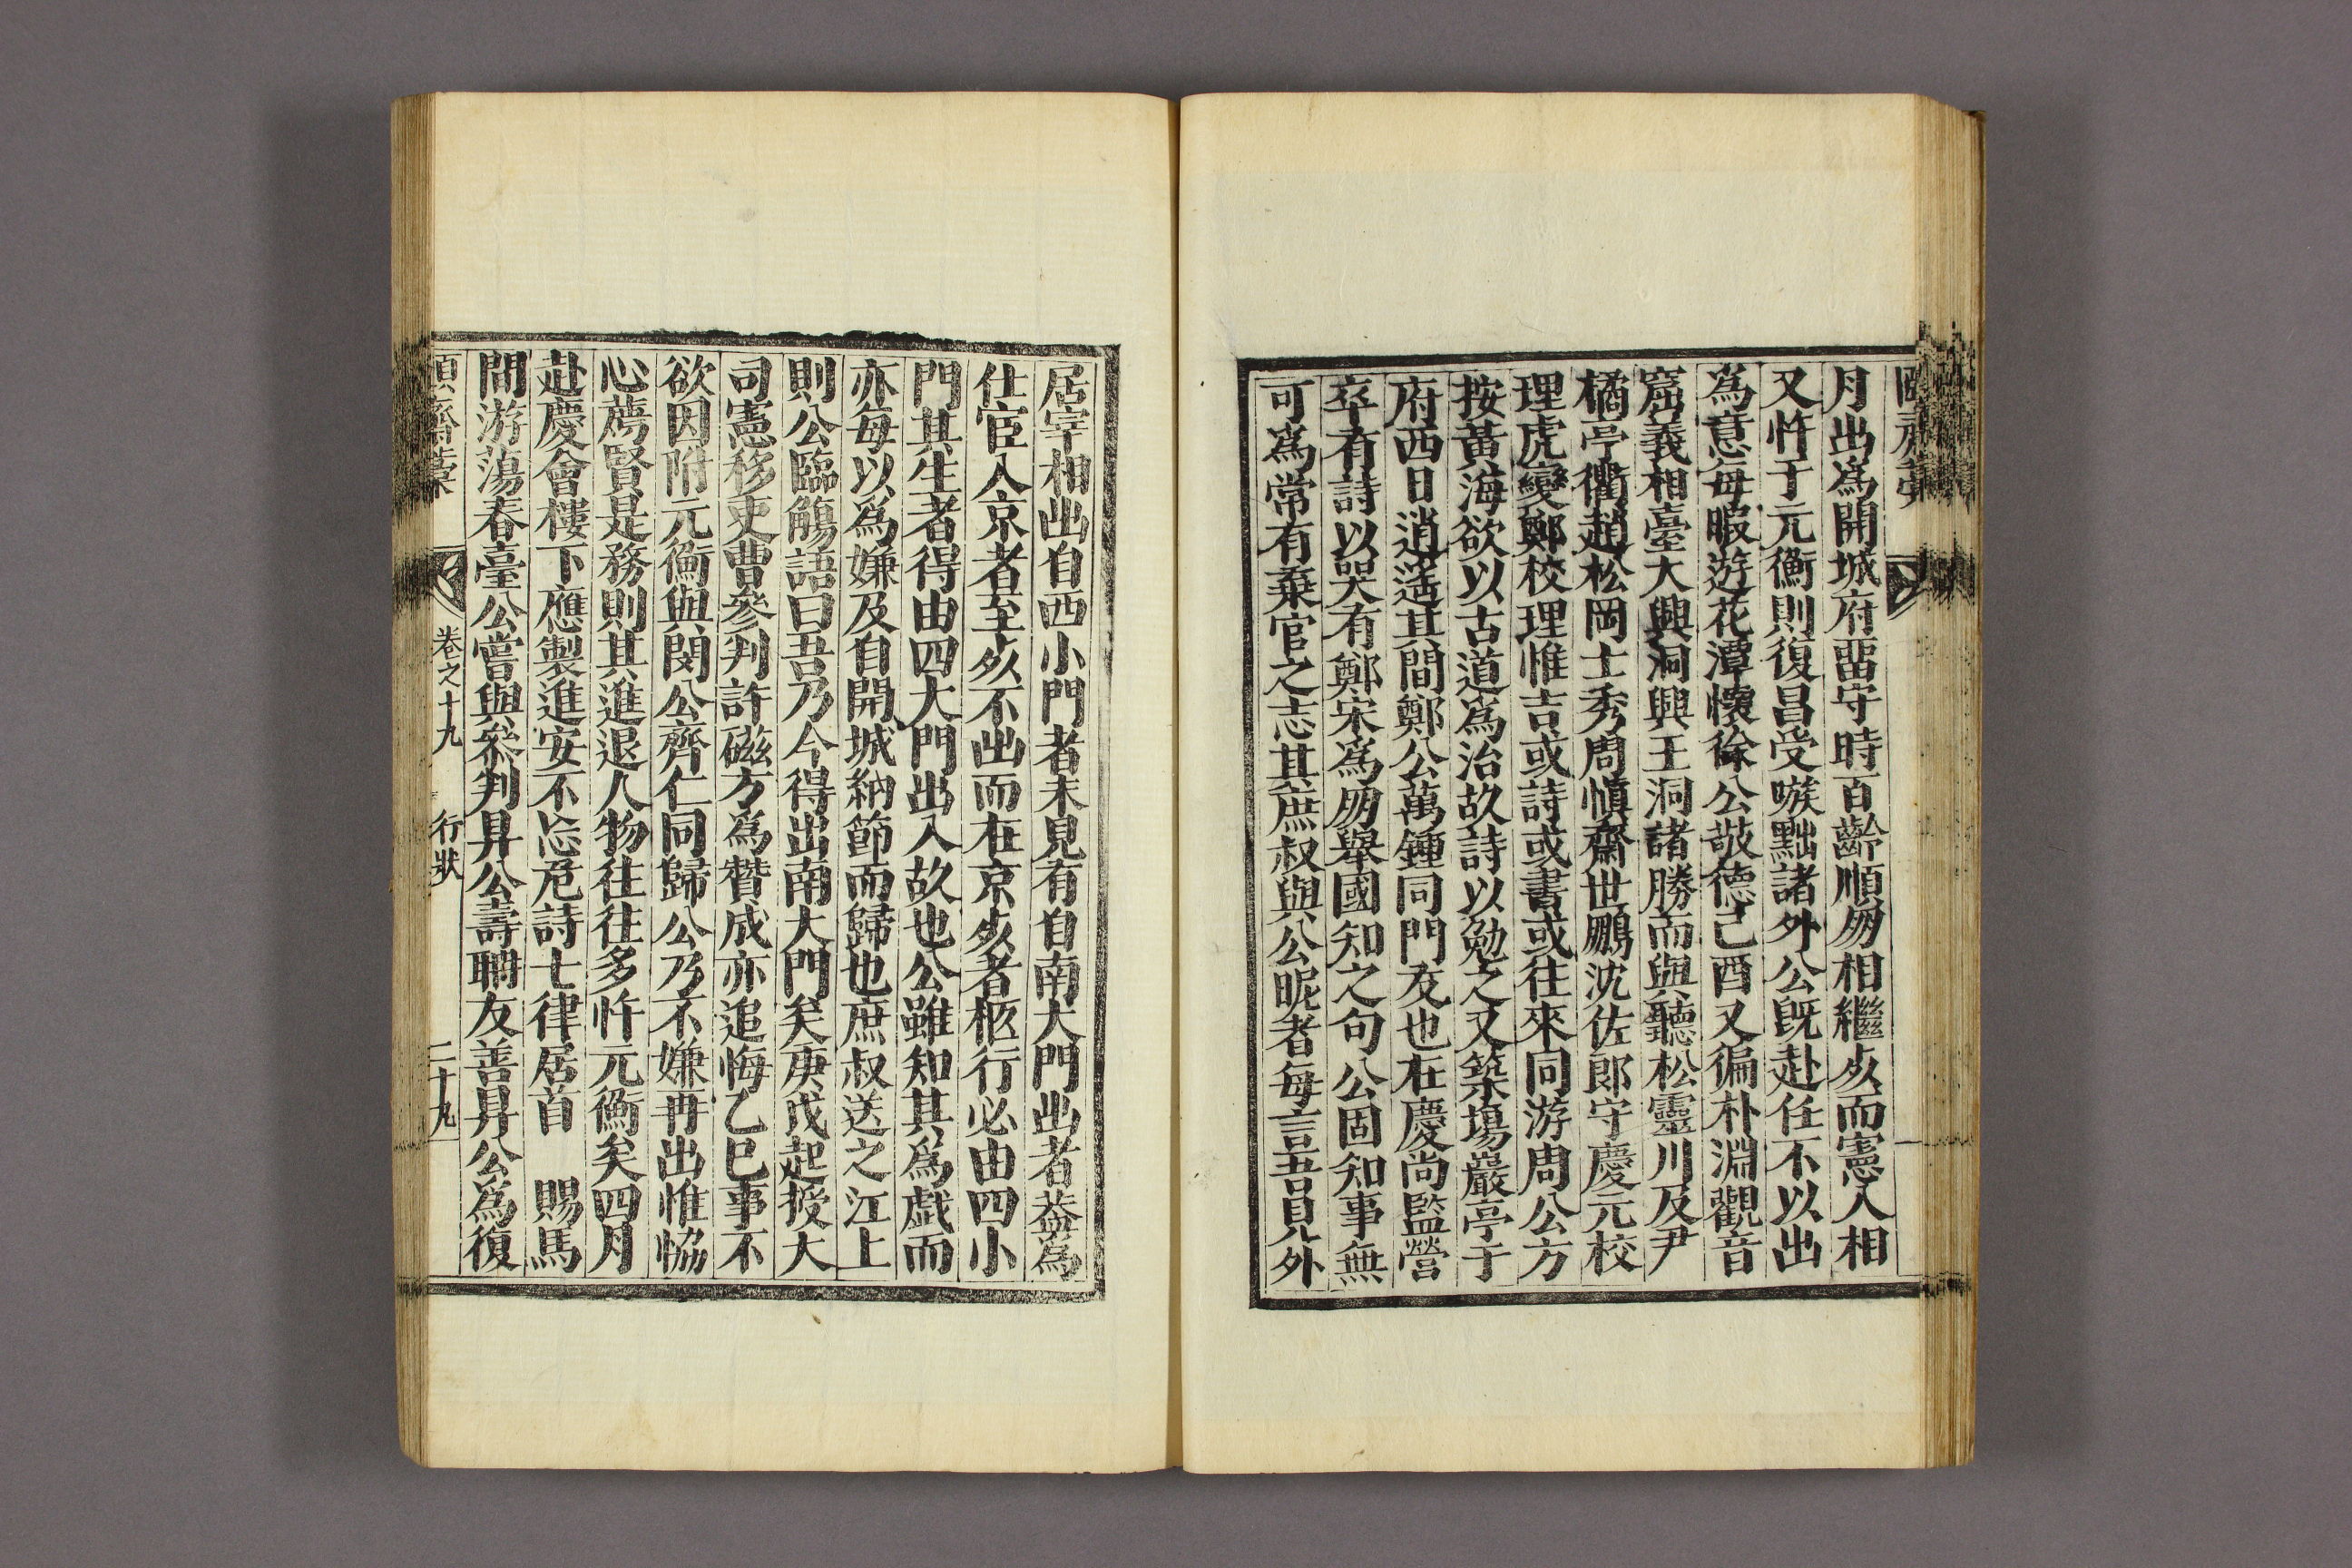 月出為開城府畱守時百齡順朋相繼㱙而憲入相
又忤于元衡則復昌受嗾黜諸外公旣赴任不以出
爲意每暇遊花潭懷徐公敬德己酉又徧朴淵觀音
窟義相臺大興洞興王洞諸勝而與聽松靈川及尹
橘亭衢趙松岡士秀周愼齋世鵬沈佐郞守慶元校
理虎變鄭校理惟吉或詩或書或往來同游周公方
按黃海欲以古道爲治故詩以勉之又築塲巖亭于
府西日逍遙其間鄭公萬鍾同門友也在慶尚監營
卒有詩以哭有鄭宋爲朋舉國知之句公固知事無
可爲常有棄官之志其庶叔與公昵者每言吾見外
居宰相出自西小門者未見有自南大門出者葢爲
仕宦入京者至㱙不出而在京㱙者柩行必由四小
門其生者得由四大門出入故也公雖知其爲戯而
亦每以爲嫌及自開城納節而歸也庶叔送之江上
則公臨觴語曰吾乃今得出南大門矣庚戌起授大
司憲移吏曹參判許磁方爲贊成亦追悔乙巳事不
欲因附元衡與閔公齊仁同歸公乃不嫌再出惟恊
心薦賢是務則其進退人物往往多忤元衡矣四月
赴慶會樓下應製進安不忘危詩七律居首　賜馬
間游蕩春臺公嘗與叅判昇公壽聃友善昇公爲復
頤齋藁　卷之十九　行狀　二十九